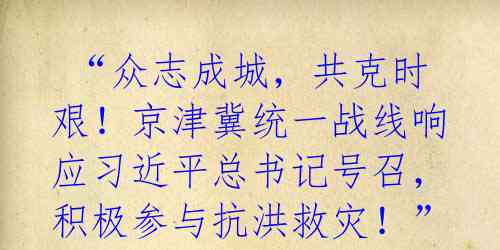 “众志成城，共克时
艰！京津冀统一战线响
应习近平总书记号召，
积极参与抗洪救灾！”